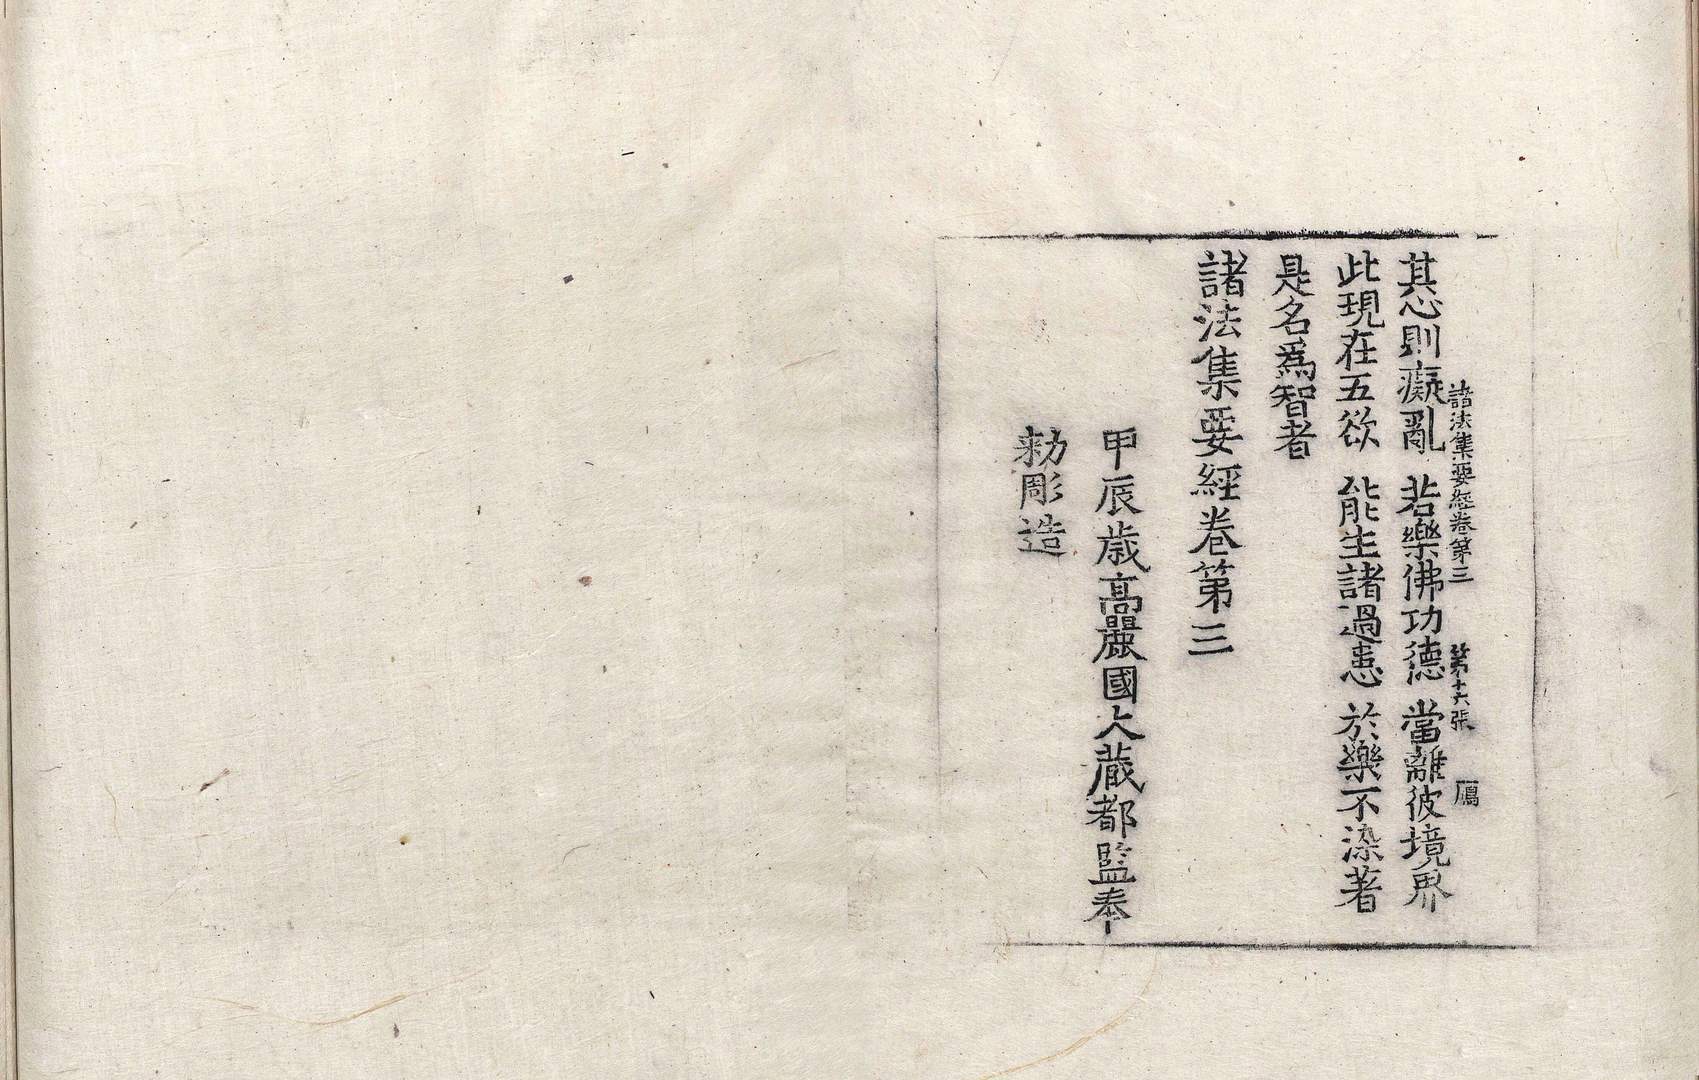 諸法集要經卷第三 第十六張 鴈
其心則癡亂 若樂佛功德 當離彼境界
此現在五欲 能生諸過患 於樂不染著
是名爲智者
諸法集要經卷第三
甲辰歳高麗國大藏都監奉
勑彫造